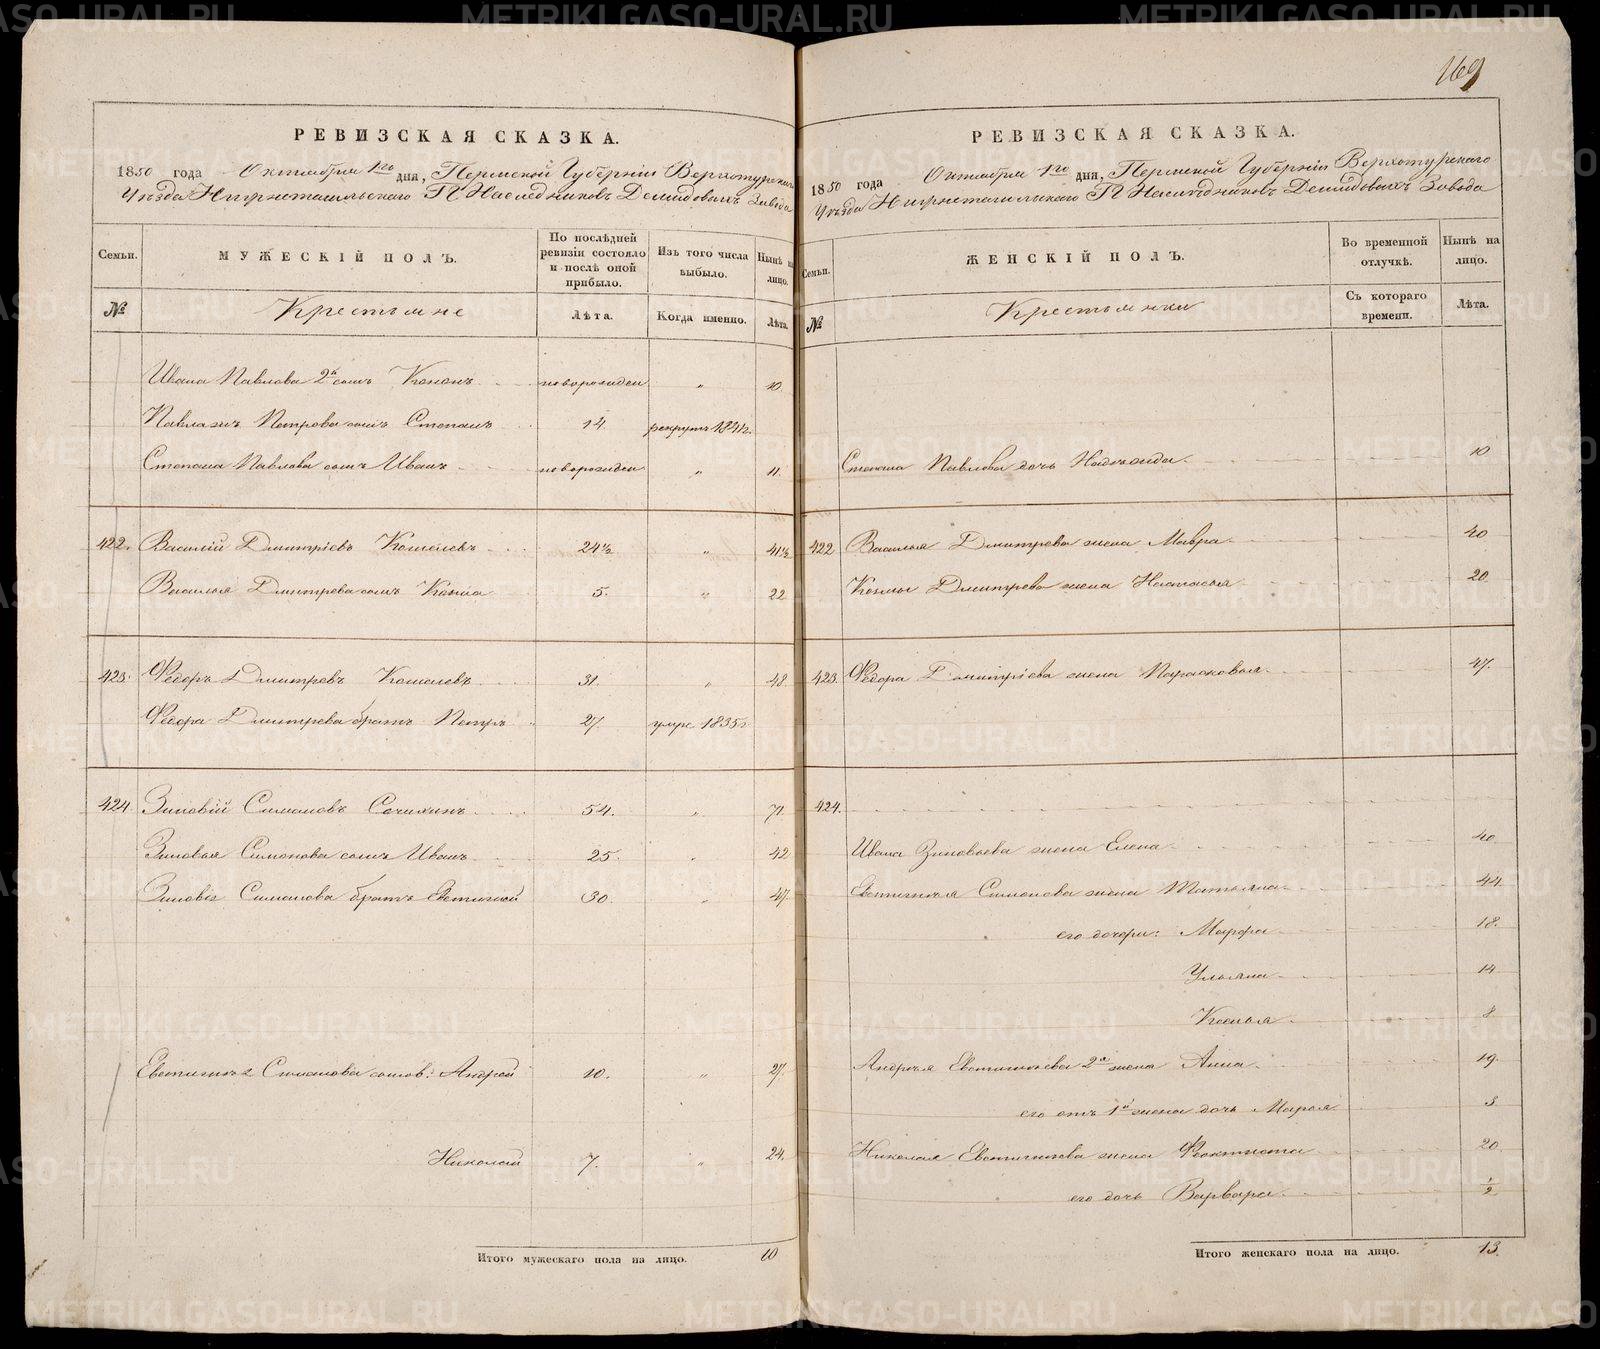 169
РЕВИЗСКАЯ СКАЗКА.
1850 года Октября 1го дня, Пермской Губерніи Верхотурскаго
Уѣзда Нижнетагильскаго Гг. Наслѣдниковъ Демидовыхъ Завода
Семьи. МУЖЕСКІЙ ПОЛЪ. По послѣдней ревизіи состояло и послѣ оной прибыло. Изъ того числа выбыло. Нынѣ на лицо.
№ Крестьяне Лѣта. Когда именно. Лѣта.
Ивана Павлова 2й сынъ Кононъ новорожден „ 10.
Павла Петрова сынъ Степанъ 14 рекрутъ 1841г.
Степана Павлова сынъ Иванъ новорожден „ 11.
422. Василій Дмитріевъ Кошелевъ 24½ „ 41½
Василья Дмитрева сынъ Козма 5. „ 22
423. Федоръ Дмитревъ Кошелевъ 31. „ 48
Федора Дмитрева братъ Петръ 27. умре 1835г
424. Зиновій Симоновъ 54. „ 71
Зиновья Симонова сынъ Иванъ 25. „ 42
Зиновія Симонова братъ Евтигней 30. „ 47.
Евтигнея Симонова сынов: Андрей 10. „ 27.
Николай 7. „ 24.
Итого мужескаго пола на лицо. 10
РЕВИЗСКАЯ СКАЗКА.
1850 года Октября 1го дня, Пермской Губерніи Верхотурскаго
Уѣзда Нижнетагильскаго Гг. Наслѣдниковъ Демидовыхъ Завода
Семьи. ЖЕНСКІЙ ПОЛЪ. Во временной отлучкѣ. Нынѣ на лицо.
№ Крестьянки Съ котораго времени. Лѣта.
Степана Павлова дочь Надежда 10
422 Василья Дмитрева жена Мавра 40
Козмы Дмитрева жена Настасья 20.
423. Федора Дмитріева жена Парасковья 47.
424.
Ивана Зиновьева жена Елена 40
Евтигнея Симонова жена Татьяна 44.
его дочери: Марфа 18.
Ульяна 14
Ксенья 8
Андрея Евтигнеева 2я жена Анна 19
его отъ 1й жены дочь Марья 3
Николая Евтигнеева жена Феоктиста 20.
его дочь Варвара ½
Итого женскаго пола на лицо. 13.
METRIKI.GASO-URAL.RU